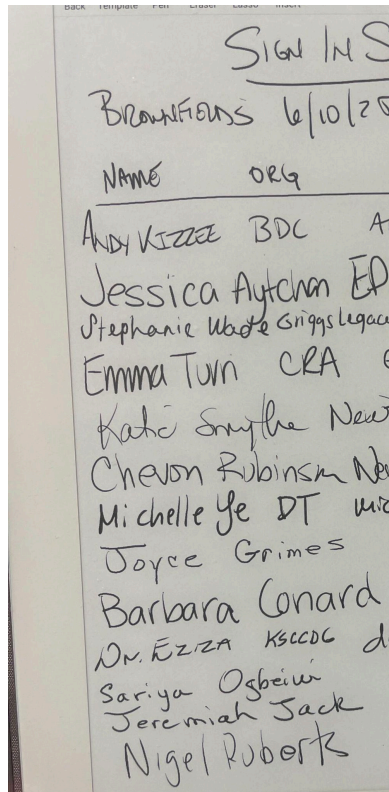 Back Template Pen Eraser Lasso Insert
SIGN IN S
BROWNFIELDS 6/10/20
NAME ORG
ANDY KIZZEE BDC A
Jessica Aytchan EP
Stephanie Wade Griggs Legac
Emma Turn CRA
Katie Smythe New
Chevon Robinson Ne
Michelle Ye DT mic
Joyce Grimes
Barbara Conard
DR. EZZA KSCCDC d
Sariya
Jeremiah Jack
Nigel Roberts